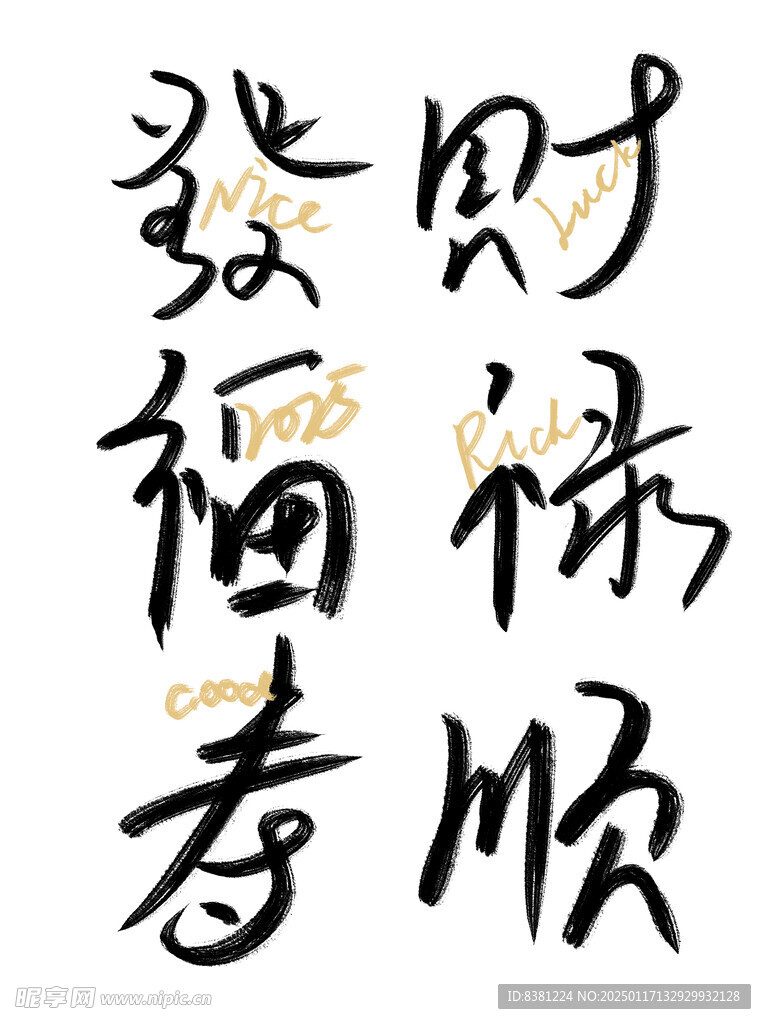 發 財
Nice Luck
福 禄
2025 Rich
寿 顺
Good
昵享网 www.nipic.cn
ID:8381224 NO:20250117132929932128